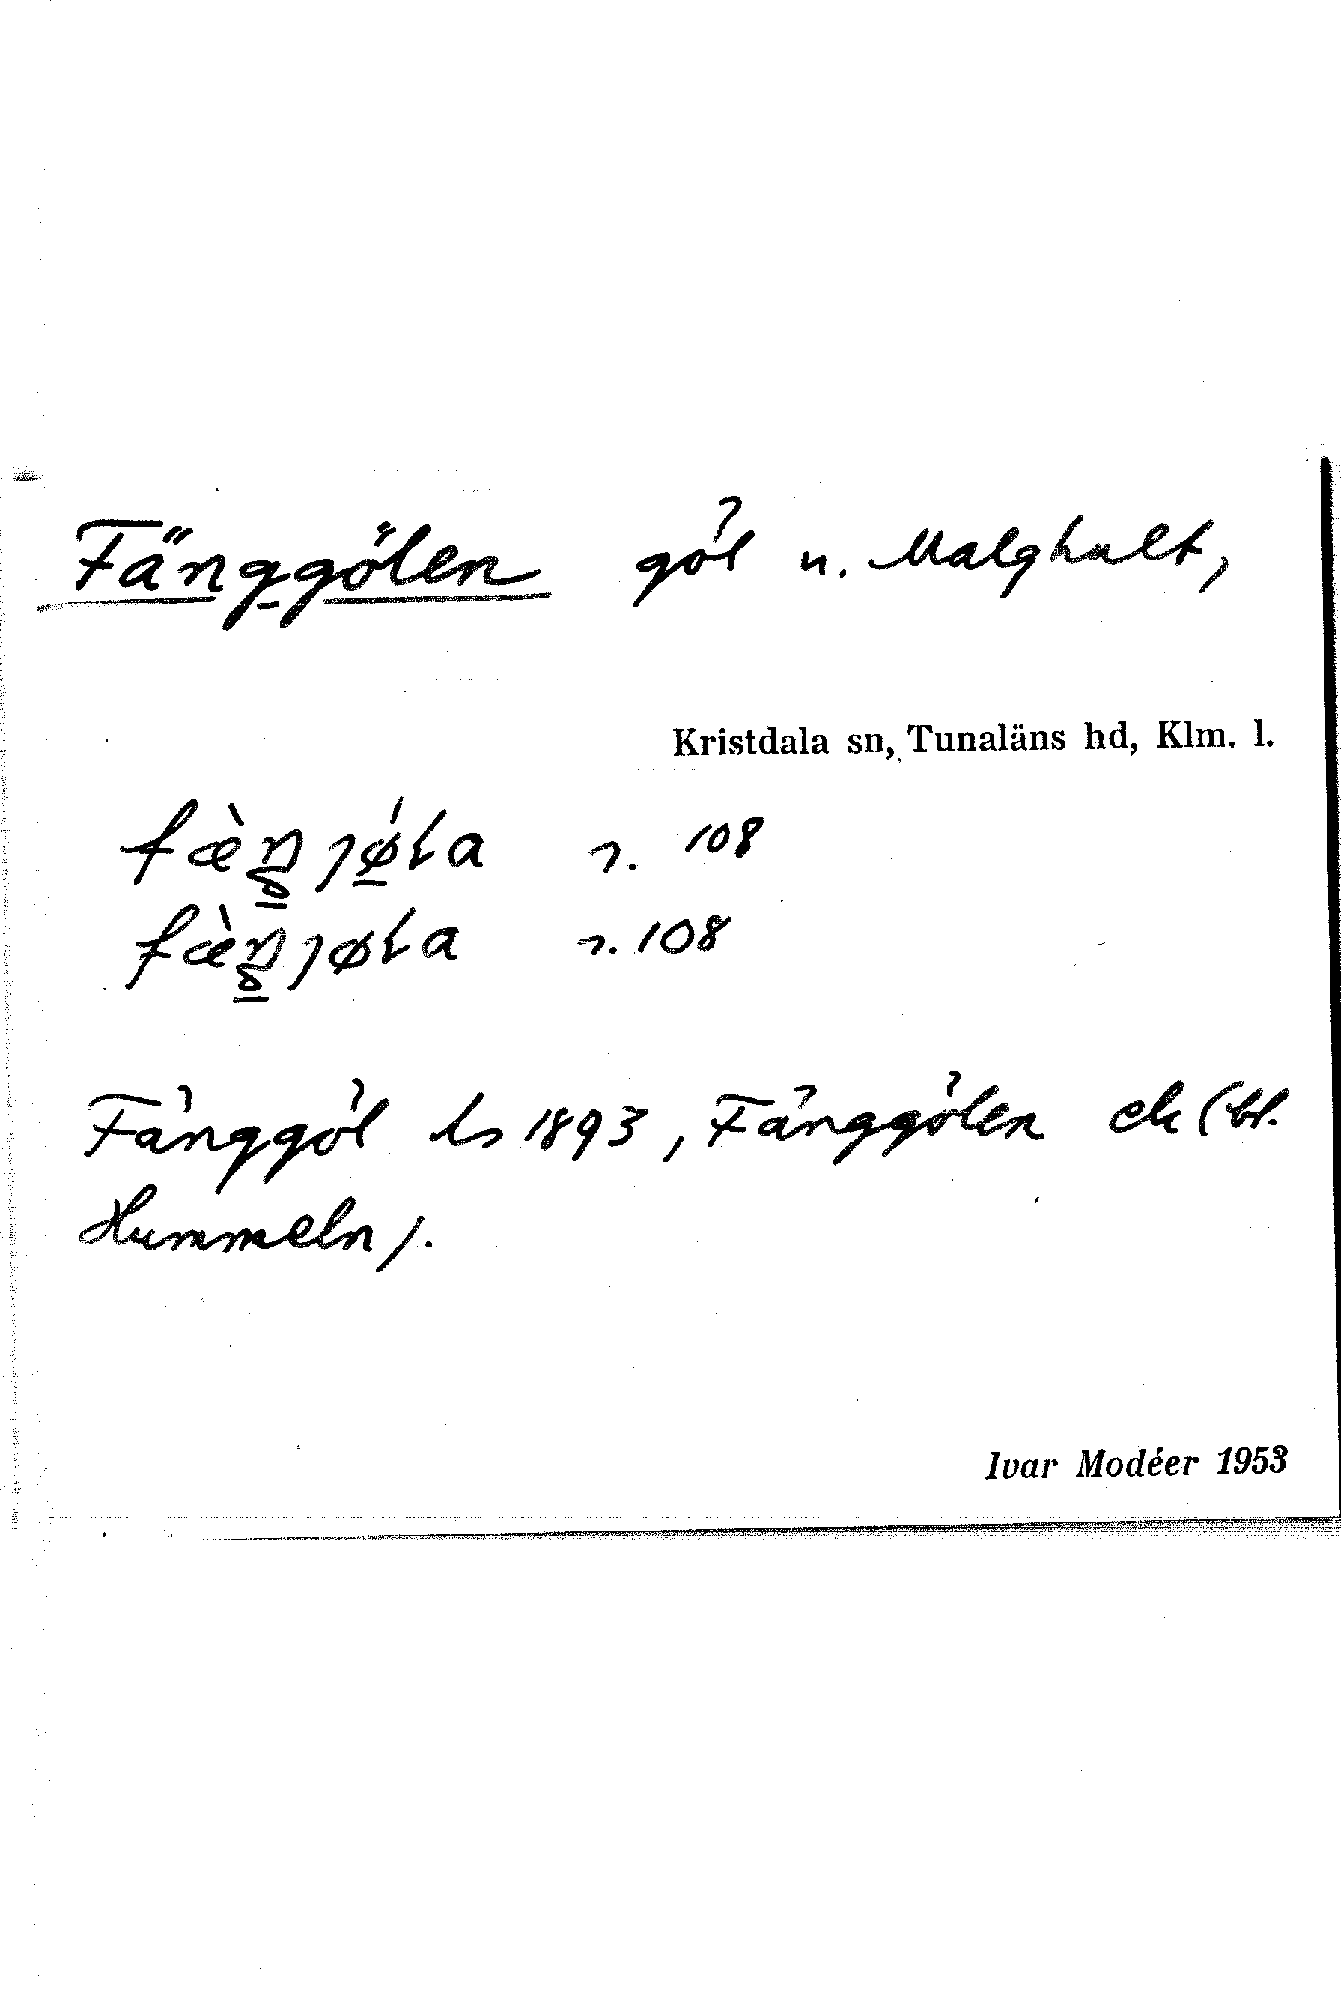 Fänggölen göl n. Malghult,
Kristdala sn, Tunaläns hd, Klm. l.
fæ̀ŋȷǿla r. 108
fæ̀ŋȷøla r. 108
Fänggöl ls 1893, Fänggölen ek (bl.
Hummeln).
Ivar Modéer 1953